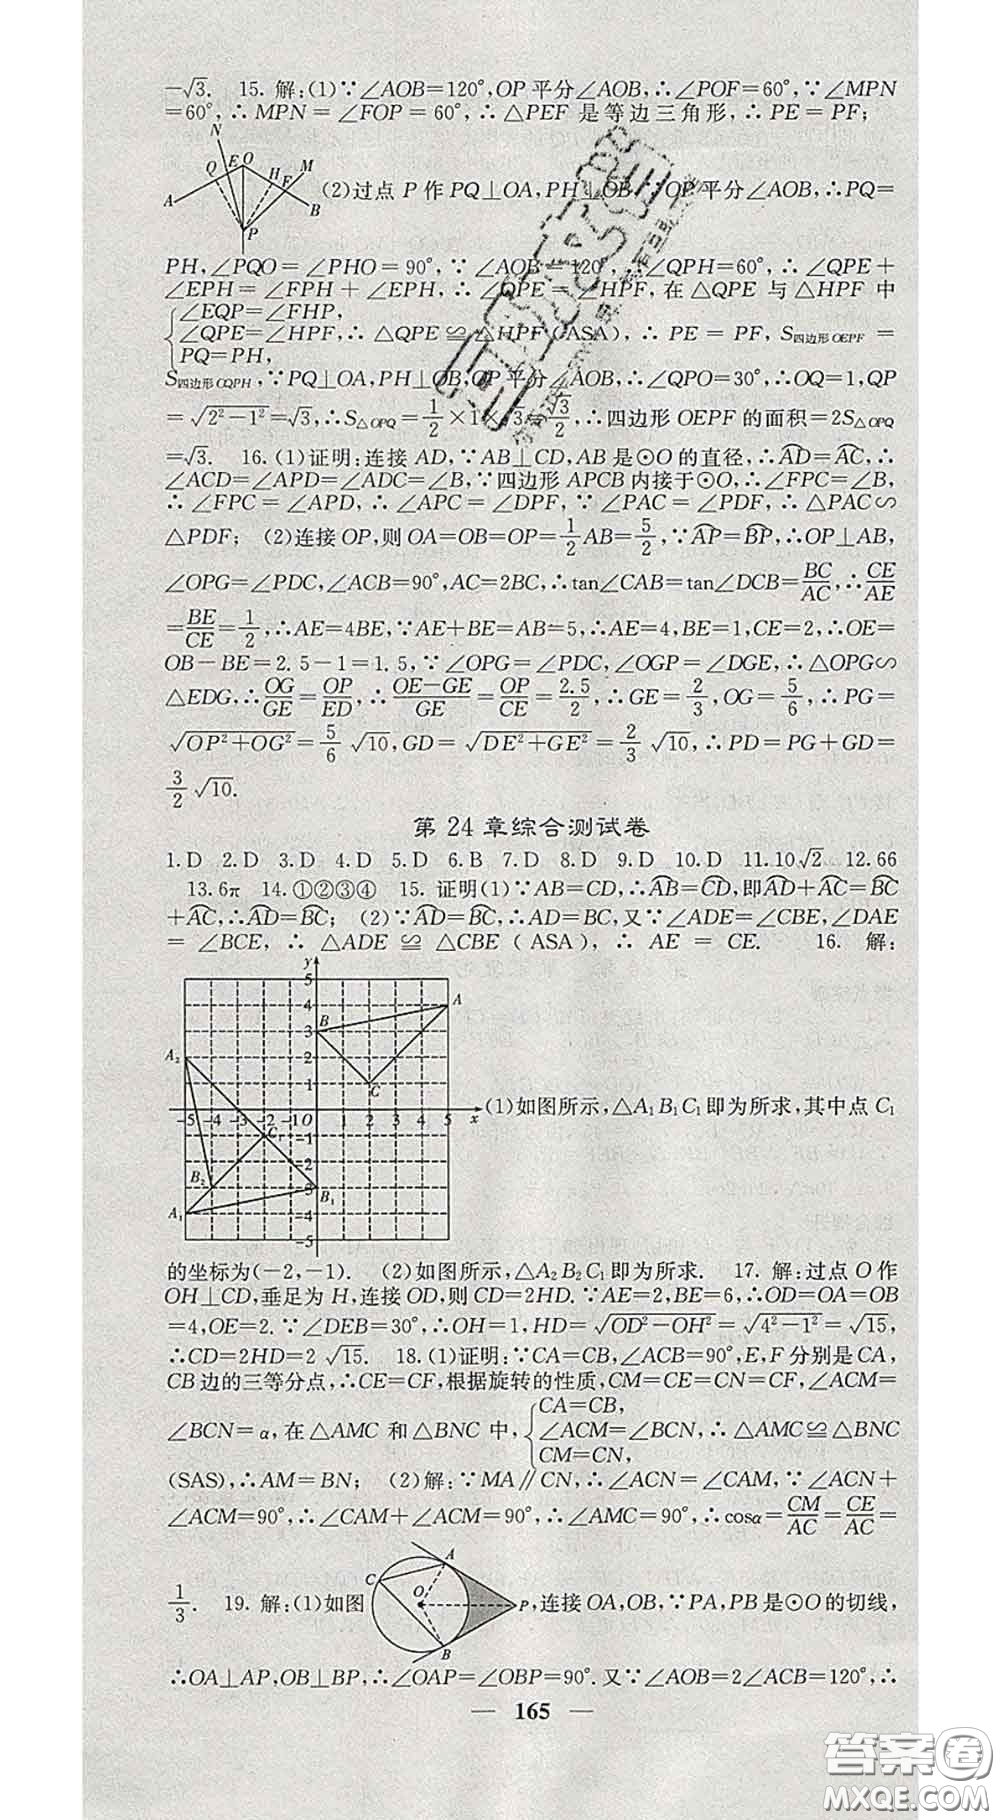 −√3. 15. 解:(1)∵∠AOB=120°,OP平分∠AOB,∴∠POF=60°,∵∠MPN
=60°,∴∠MPN=∠FOP=60°,∴△PEF是等边三角形,∴PE=PF;
N
Q E O H F M
A B
P
(2)过点P作PQ⊥OA,PH⊥OB,∵OP平分∠AOB,∴PQ=
PH,∠PQO=∠PHO=90°,∵∠AOB=120°,∴∠QPH=60°,∴∠QPE+
∠EPH=∠FPH+∠EPH,∴∠QPE=∠HPF,在△QPE与△HPF中
{∠EQP=∠FHP,
∠QPE=∠HPF,∴△QPE≌△HPF(ASA),∴PE=PF,S四边形OEPF=
PQ=PH,
S四边形OQPH,∵PQ⊥OA,PH⊥OB,OP平分∠AOB,∴∠QPO=30°,∴OQ=1,QP
=√(2²−1²)=√3,∴S△OPQ=1/2×1×√3=√3/2,∴四边形OEPF的面积=2S△OPQ
=√3. 16.(1)证明:连接AD,∵AB⊥CD,AB是⊙O的直径,∴A͡D=A͡C,∴
∠ACD=∠APD=∠ADC=∠B,∵四边形APCB内接于⊙O,∴∠FPC=∠B,
∴∠FPC=∠APD,∴∠APC=∠DPF,∵∠PAC=∠PDF,∴△PAC∽
△PDF; (2)连接OP,则OA=OB=OP=1/2AB=5/2,∵A͡P=B͡P,∴OP⊥AB,
∠OPG=∠PDC,∠ACB=90°,AC=2BC,∴tan∠CAB=tan∠DCB=BC/AC,∴CE/AE
=BE/CE=1/2,∴AE=4BE,∵AE+BE=AB=5,∴AE=4,BE=1,CE=2,∴OE=
OB−BE=2.5−1=1.5,∵∠OPG=∠PDC,∠OGP=∠DGE,∴△OPG∽
△EDG,∴OG/GE=OP/ED,∴(OE−GE)/GE=OP/CE=2.5/2,∴GE=2/3,OG=5/6,∴PG=
√(OP²+OG²)=5/6√10,GD=√(DE²+GE²)=2/3√10,∴PD=PG+GD=
3/2√10.
第24章综合测试卷
1.D 2.D 3.D 4.D 5.D 6.B 7.D 8.D 9.D 10.D 11.10√2 12.66
13.6π 14.①②③④ 15.证明(1)∵AB=CD,∴A͡B=C͡D,即A͡D+A͡C=B͡C
+A͡C,∴A͡D=B͡C; (2)∵A͡D=B͡C,∴AD=BC,又∵∠ADE=∠CBE,∠DAE
=∠BCE,∴△ADE≌△CBE(ASA),∴AE=CE. 16. 解:
y
5
4 A
B 3
A₂ 2
1 C
−5 −4 −3 −2 −1 O 1 2 3 4 5 x
C₁ −1
−2
B₂ −3 B₁
A₁ −4
−5
(1)如图所示,△A₁B₁C₁即为所求,其中点C₁
的坐标为(−2,−1). (2)如图所示,△A₂B₂C₁即为所求. 17. 解:过点O作
OH⊥CD,垂足为H,连接OD,则CD=2HD.∵AE=2,BE=6,∴OD=OA=OB
=4,OE=2.∵∠DEB=30°,∴OH=1,HD=√(OD²−OH²)=√(4²−1²)=√15,
∴CD=2HD=2√15. 18.(1)证明:∵CA=CB,∠ACB=90°,E,F分别是CA,
CB边的三等分点,∴CE=CF,根据旋转的性质,CM=CE=CN=CF,∠ACM=
∠BCN=α,在△AMC和△BNC中,{CA=CB,
∠ACM=∠BCN,∴△AMC≌△BNC
CM=CN,
(SAS),∴AM=BN; (2)解:∵MA∥CN,∴∠ACN=∠CAM,∵∠ACN+
∠ACM=90°,∴∠CAM+∠ACM=90°,∴∠AMC=90°,∴cosα=CM/AC=CE/AC=
1/3. 19. 解:(1)如图
A
C
O P
B
,连接OA,OB,∵PA,PB是⊙O的切线,
∴OA⊥AP,OB⊥BP,∴∠OAP=∠OBP=90°.又∵∠AOB=2∠ACB=120°,∴
— 165 —
答案圈
MXQE.COM